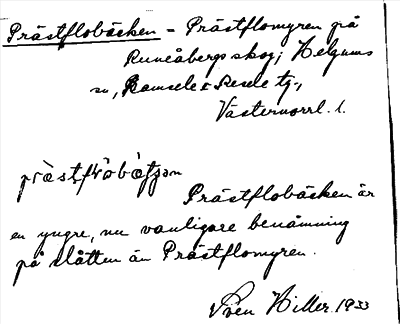 Prästflobäcken - Prästflomyren på
Runåbergs skog; Helgums
sn, Ramsele o. Resele tg.,
Västernorrl. l.
Prästflobäcken är
en yngre, nu vanligare benämning
på slåtten än Prästflomyren.
Sven Hiller 1933